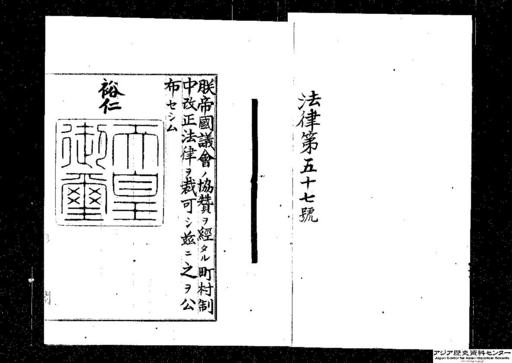 法律第五十七號
朕帝國議會ノ協贊ヲ經タル町村制
中改正法律ヲ裁可シ茲ニ之ヲ公
布セシム
裕仁
天皇
御璽
アジア歴史資料センター
Japan Center for Asian Historical Records